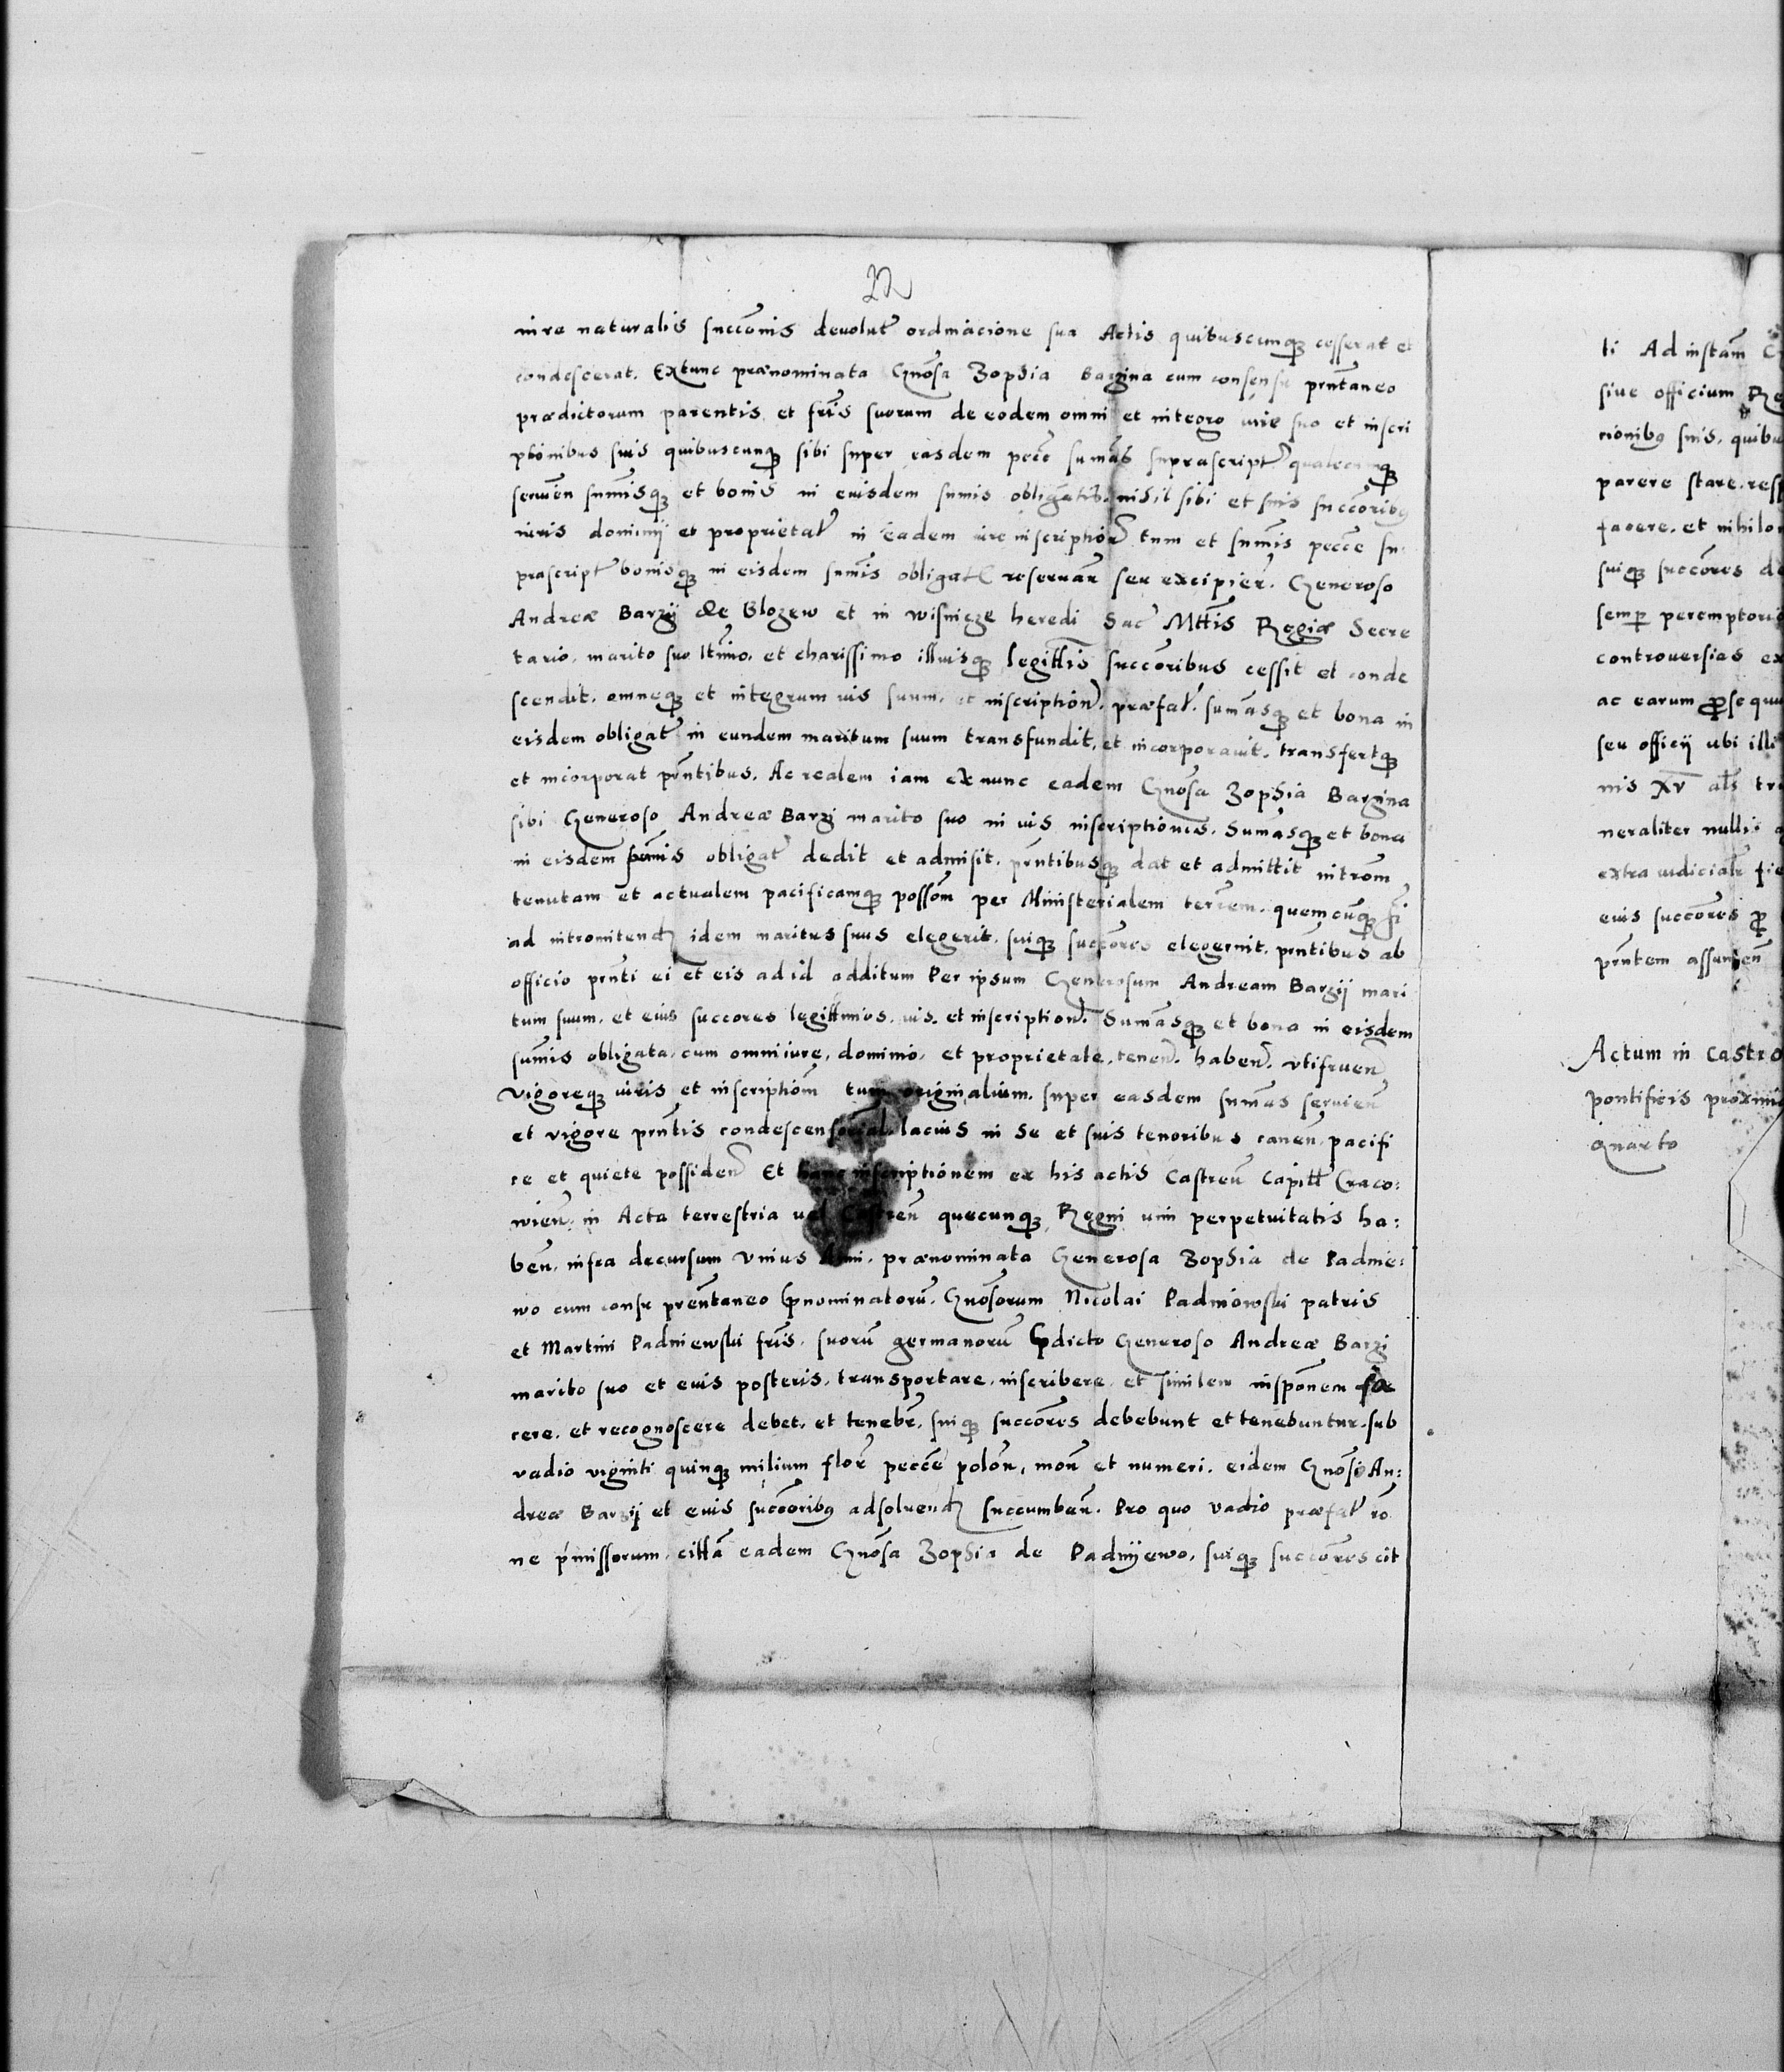 iure naturalis succōnis devolut ordinacione sua Actis quibuscunq cesserat et
condescerat. Extunc prænominata Gnōsa Zophia Bargina cum consensu prn̄taneo
prædictorum parentis et fr̄is suorum de eodem omni et integro iure suo et inscri
ptionibus suis quibuscunq sibi super easdem pecc̄ sum̄as suprascript qualecunq
servien̄ sum̄isq et bonis in eiisdem sumis obligatis. nihil sibi et suis succōribus
iuris dominij et proprietat in eadem iure inscription tum et sum̄is pecc̄e su
prascript bonisq in eisdem sum̄is obligat reservan seu excipien. Generoso
Andreæ Barzij de Blozew et in Wisnicze heredi Sac Mttīs Regiæ Secre
tario, marito suo ltīmo, et charissimo illiusq legittīs succōribus cessit et conde
scendit. omneq et integrum ius suum, et inscription præfat. sum̄asq et bona in
eisdem obligat in eundem maritum suum transfundit, et incorporavit. transfertq
et incorporat prn̄tibus. Ac realem iam ex nunc eadem Gnōsa Zophia Bargina
sibi Generoso Andreæ Barzi marito suo in ius inscriptiones. Sumasq et bona
in eisdem sum̄is obligat dedit et admisit. prn̄tibusq dat et admittit intrōm
tenutam et actualem pacificamq possōm per Ministerialem terrem. quemcūq s̄i
ad intromitend idem maritus suus elegerit. suiq succōres elegerint. prn̄tibus ab
officio prn̄ti ei et eis ad id additum Per ipsum Generosum Andream Barzij mari
tum suum, et eius succores legittimos. ius. et inscription. Sumasq et bona in eisdem
sum̄is obligata, cum omni iure, dominio, et proprietate, tenen. haben. utifruen
vigoreq iuris et inscriptiōm tum originalium. super easdem sum̄as servien̄
et vigore prn̄tis condescensorial lacius in se et suis tenoribus canen̄. pacifi
ce et quiete possiden Et hanc inscriptionem ex his actis Castren̄ Capitt̄ Craco:
wien. in Acta terrestria vel Castren̄ quecunq Regni vim perpetuitatis ha:
ben̄. infra decursum Unius Anni. prænominata Generosa Zophia de Padnie:
wo cum consu pren̄taneo pnominatorū. Gnōsorum Nicolai Padniowski patris
et Martini Padniewski fr̄is. suorū germanorū pdicto Generoso Andreæ Barzi
marito suo et eius posteris, transportare, inscribere et similem inspōnem fa
cere. et recognoscere debet, et tenebr̄, suiq succōres debebunt et tenebuntur. sub
vadio viginti quinq milium flor̄ pecc̄e polon̄, mon̄ et numeri. eidem Gnōso An:
dreæ Barzij et eius succōribus adsolvend succumben̄. Pro quo vadio præfat ro
ne p̄missorum, citt̄a eadem Gnōsa Zophia de Padnijewo, suiq succōres cit
ti Ad instam̄
sive officium Re
cionibus suis, quibu
parere stare. res
facere. et nihilo
suiq succōres de
semp peremptorie
controversias ex
ac earum psequu
seu officij ubi illi
nis XV al̄s tr
neraliter nullis
extra iudicialr̄ fie
eius succōres p
prn̄tem assumen̄
Actum in Castro
pontificis proxim
Quarto